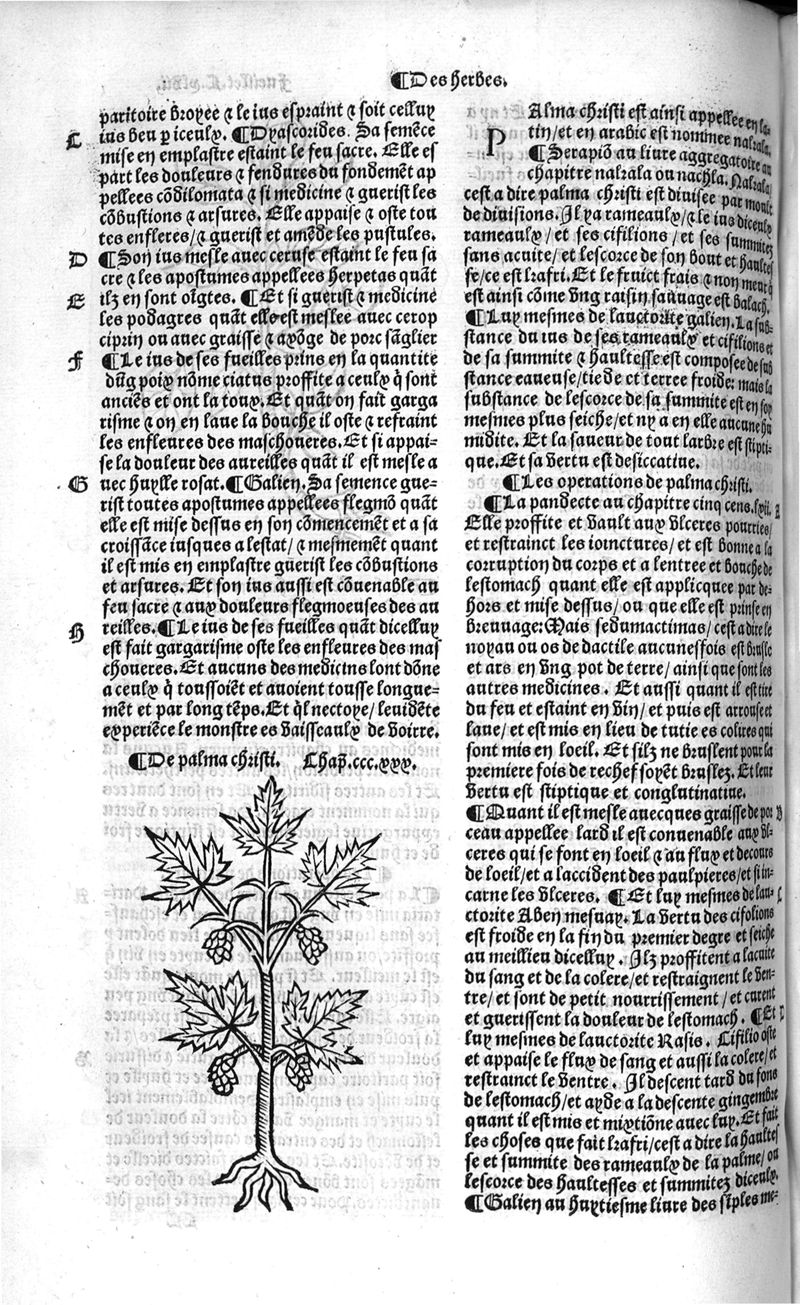 ¶Des herbes.
paritoire broyee ⁊ le ius espraint ⁊ soit celluy
C
ius beu p iceulx. ¶Dyascorides. Sa semēce
mise en emplastre estaint le feu sacre. Elle es
part les douleurs ⁊ fendures du fondemēt ap
pellees cōdilomata ⁊ si medicine ⁊ guerist les
cōbustions ⁊ arsures. Elle appaise ⁊ oste tou
tes enfleres/⁊ guerist et amēde les pustules.
D
¶Son ius mesle auec ceruse estaint le feu sa
cre ⁊ les apostumes appellees herpetas quāt
E
ilz en sont oīgtes. ¶Et si guerist ⁊ medicine
les podagres quāt elle est meslee auec cerop
ciprin ou auec graisse ⁊ axōge de porc sāglier
F
¶Le ius de ses fueilles prins en la quantite
dūg poix nōme ciatus proffite a ceulx q̄ sont
anciēs et ont la toux. Et quāt on fait garga
risme ⁊ on en laue la bouche il oste ⁊ refraint
les enfleures des maschoueres. Et si appai-
se la douleur des aureilles quāt il est mesle a
G
uec huylle rosat. ¶Galien. Sa semence gue-
rist toutes apostumes appellees flegmō quāt
elle est mise dessus en son cōmencemēt et a sa
croissāce iusques a lestat/⁊ mesmemēt quant
il est mis en emplastre guerist les cōbustions
et arsures. Et son ius aussi est cōuenable au
feu sacre ⁊ aux douleurs flegmoeuses des au
H
reilles. ¶Le ius de ses fueilles quāt dicelluy
est fait gargarisme oste les enfleures des mas
choueres. Et aucuns des medicins lont dōne
a ceulx q̄ toussoiēt et auoient tousse longue-
mēt et par long tēps. Et q̄l nectoye/leuidēte
experiēce le monstre es vaisseaulx de voirre.
¶De palma christi. Chap̄. ccc.xxx.
PAlma christi est ainsi appellee en la-
tin/et en arabic est nommee nalrala.
¶Serapiō au liure aggregatoire au
chapitre nalrala ou nachla. Nalrala
cest a dire palma christi est diuisee par moult
de diuisions. Il y a rameaulx/⁊ le ius diceulx
rameaulx/ et ses cifilions/ et ses summitez
sans acuite/ et lescorce de son bout et haultes
se/ce est lrafri. Et le fruict frais ⁊ non meur q̄
est ainsi cōme vng raisin sauuage est balach.
¶Luy mesmes de lauctorite galien. La sub-
stance du ius de ses rameaulx et cifilions et
de sa summite ⁊ haultesse est composee de sub
stance eaueuse/tiede et terree froide: mais la
substance de lescorce de sa summite est en soy
mesmes plus seiche/et ny a en elle aucune hu
midite. Et la saueur de tout larbre est stipti-
que. Et sa vertu est desiccatiue.
¶Les operations de palma christi.
¶La pandecte au chapitre cinq cens.lxii.
Elle proffite et vault aux vlceres pourries/
et restrainct les ioinctures/et est bonne a la
corruption du corps et a lentree et bouche de
lestomach quant elle est applicquee par de-
hors et mise dessus/ou que elle est prinse en
breuuage: Mais sedumactimas/cest a dire le
noyau ou os de dactile aucunesfois est brusle
et ars en vng pot de terre/ainsi que sont les
autres medicines. Et aussi quant il est tire
du feu et estaint en vin/et puis est arrouse et
laue/et est mis en lieu de tutie es colires qui
sont mis en loeil. Et silz ne bruslent pour la
premiere fois de rechef soyēt bruslez. Et leur
vertu est stiptique et conglutinatiue.
¶Quant il est mesle auecques graisse de por
ceau appellee lard il est conuenable aux vl-
ceres qui se font en loeil ⁊ au flux et decours
de loeil/et a laccident des paulpieres/et si in-
carne les vlceres. ¶Et luy mesmes de lau-
ctorite Aben mesuay. La vertu des cifolions
est froide en la fin du premier degre et seiche
au meillieu dicelluy. Ilz proffitent a lacuite
du sang et de la colere/et restraignent le ven-
tre/et sont de petit nourrissement/et curent
et guerissent la douleur de lestomach. ¶Et
luy mesmes de lauctorite Rasis. Cifilio oste
et appaise le flux de sang et aussi la colere/et
restrainct le ventre. Il descent tard du fons
de lestomach/et ayde a la descente gingembre
quant il est mis et mixtiōne auec luy. Et fait
les choses que fait lrafri/cest a dire la haultes
se et summite des rameaulx de la palme/ou
lescorce des haultesses et summitez diceulx.
¶Galien au huytiesme liure des sīples me-